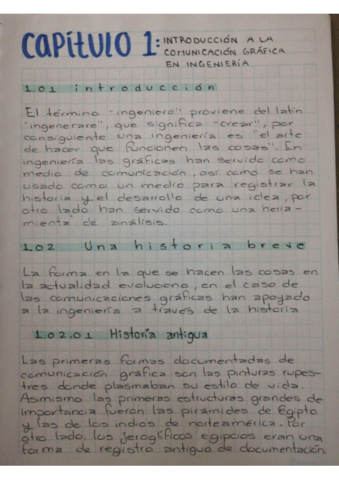 CAPÍTULO 1: INTRODUCCIÓN A LA
COMUNICACIÓN GRÁFICA
EN INGENIERÍA
1.01 introducción
El término "ingeniero" proviene del latín
"ingenerare", que significa "crear", por
consiguiente una ingeniería es "el arte
de hacer que funcionen las cosas". En
ingeniería las gráficas han servido como
medio de comunicación, así como se han
usado como un medio para registrar la
historia y el desarrollo de una idea, por
otro lado han servido como una herra-
mienta de análisis.
1.02 Una historia breve
La forma en la que se hacen las cosas en
la actualidad evoluciono, en el caso de
las comunicaciones gráficas han apoyado
a la ingeniería a través de la historia
1.02.01 Historia antigua
Las primeras formas documentadas de
comunicación gráfica son las pinturas rupes-
tres donde plasmaban su estilo de vida.
Asimismo las primeras estructuras grandes de
importancia fueron las pirámides de Egipto
y las de los indios de norteamérica. Por
otro lado, los jeroglíficos egipcios eran una
forma de registro antiguo de documentación